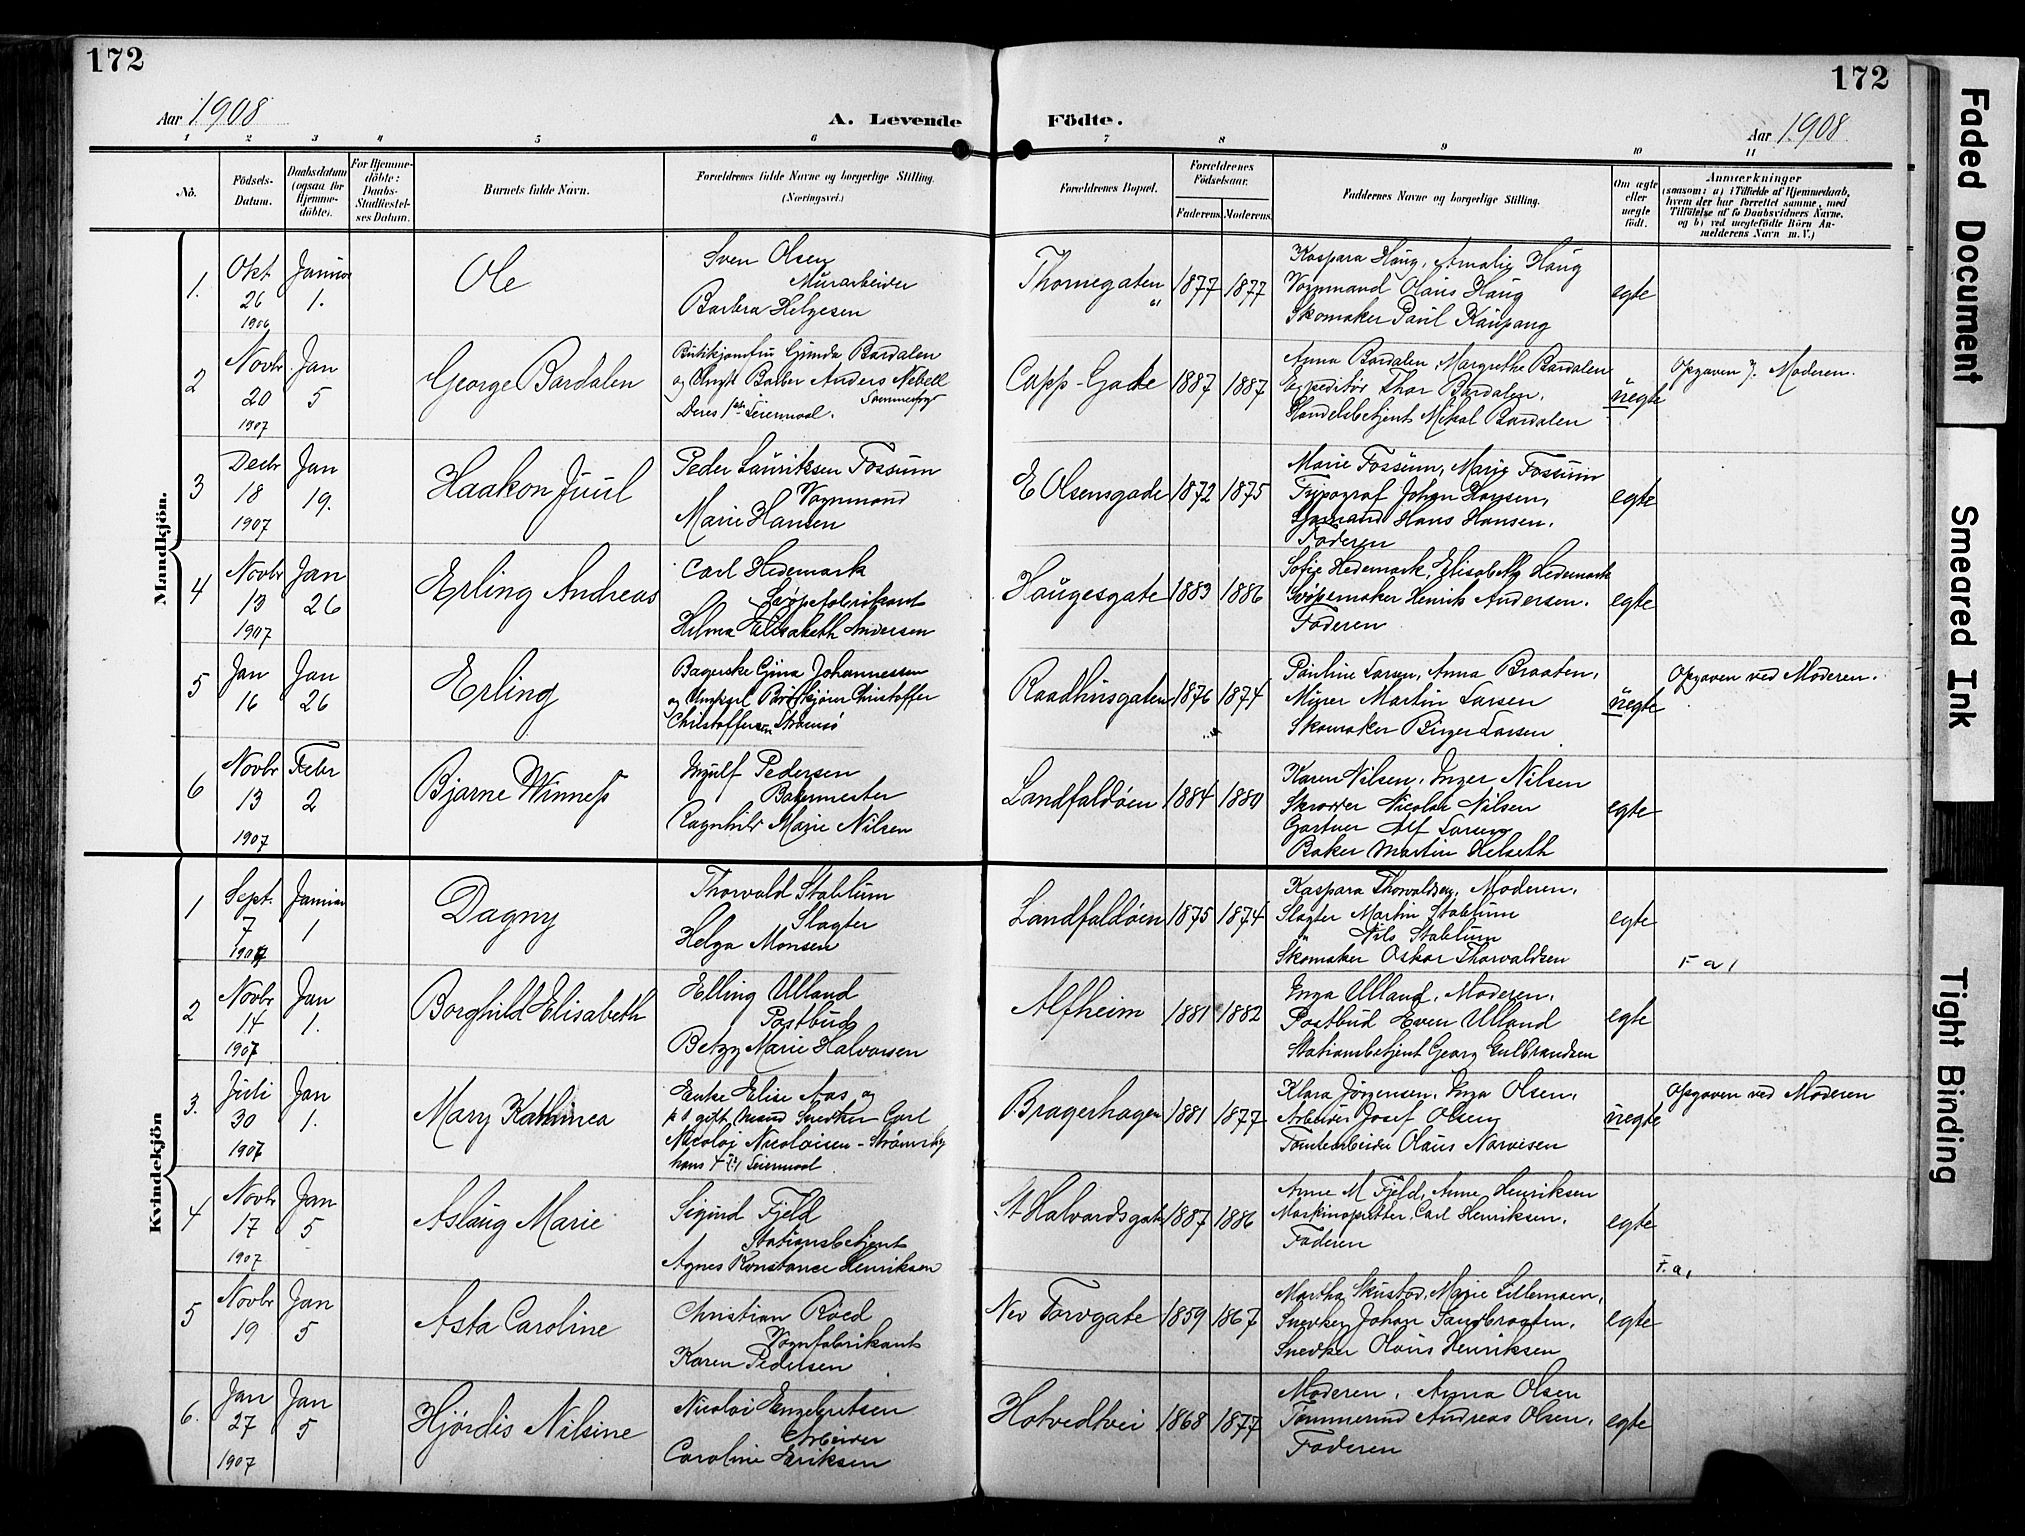 172
172
Aar 1908
A. Levende
Födte.
Aar 1908
1 2 3 4 5 6 7 8 9 10 11
No.
Födsels-
Datum.
Daabsdatum
(ogsaa for
Hjemme-
döbte).
For Hjemme-
döbte:
Daabs-
Stadfæstel-
ses Datum.
Barnets fulde Navn.
Forældrenes fulde Navne og borgerlige Stilling.
(Næringsvei.)
Forældrenes Bopæl.
Forældrenes
Födselsaar.
Faderens
Moderens
Faddernes Navne og borgerlige Stilling.
Om ægte
eller
uægte
födt.
Anmærkninger
(saasom: a) i Tilfælde af Hjemmedaab,
hvem der har forrettet samme, med
Tilföielse af to Daabsvidners Navne.
og b) ved uægtefödte Börn An-
melderens Navn m. V.)
Mandkjön.
1.
Okt
26
1906
Januar
1.
Ole
Sven Olsen
Murarbeider
Barbra Helgesen
Thornegaten
1877
1877
Kaspara Haug, Amalie Haug
Vognmand Olaus Haug
Skomaker Paul Kaupang
egte
2
Novbr
20
1907
Jan
5
George Bardalen
Butikjomfru Gunda Bardalen
og Ungkl Barber Anders Nebell
Deres 1ste Leiermaal.
Capp-Gade
1887
1887
Anna Bardalen, Margrethe Bardalen
Expeditör Thor Bardalen.
Handelsbetjent Mikal Bardalen
uegte
Opgaven v. Moderen.
3
Decbr
18
1907
Jan
19.
Haakon Juul
Peder Lauriksen Fossum
Vognmand
Marie Hansen
E Olsensgade
1872
1875
Marie Fossum, Marie Fossum
Typograf Johan Hansen,
Sjömand Hans Hansen.
Faderen
egte
4
Novbr
13
1907
Jan
26
Erling Andreas
Carl Hedemark
Svöpefabrikant
Hilma Elisabeth Andersen
Haugesgate
1883
1886
Sofie Hedemark, Elisabeth Hedemark
Svöpemaker Henrik Andersen.
Faderen
egte
5
Jan
16
Jan
26
Erling
Bagerske Gina Johannessen
og Ungkarl Christoffer
Christoffersen Strömsö
Raadhusgaten
1876
1874
Pauline Larsen, Anna Braaten,
Murer Martin Larsen
Skomaker Birger Larsen
uegte
Opgaven ved Moderen.
6
Novbr
13
1907
Febr
2
Bjarne Winness
Ingulf Pedersen
Bakermester
Ragnhild Marie Nilsen
Landfaldöen
1884
1880
Karen Nilsen, Inger Nilsen
Skrædder Nicolai Nilsen
Gartner Alf Larsen
Baker Martin Helseth
egte
Kvindekjön
1
Sept.
7
1907
Januar
1
Dagny
Thorvald Stablum
Slagter
Helga Monsen
Landfaldöen
1875
1874
Kaspara Thorvaldsen, Moderen,
Slagter Martin Stablum
Nils Stablum
Skomaker Oskar Thorvaldsen
egte
F. a,
2
Novbr
14
1907
Jan
1.
Borghild Elisabeth
Elling Ulland
Postbud
Betzy Marie Halvorsen
Alfheim
1881
1882
Inga Ulland, Moderen,
Postbud Even Ulland
Stationsbetjent Georg Gulbrandsen
egte
3.
Juli
30
1907
Jan
1.
Mary Kathinca
Enke Elise Aas og
gift Mand Snedker Carl
Nicolai Nicolaisen-
hans 4de Leiermaal
Bragerhagen
1881
1877
Klara Jörgensen, Inga Olsen,
Arbeider Josef Olsen
Tomtearbeider Olaus Narvesen
uegte
Opgaven ved Moderen
4
Novbr
17
1907
Jan
5
Aslaug Marie
Sigurd Fjeld
Stationsbetjent
Agnes Konstance Henriksen
St Halvardsgate
1887
1886
Anne M Fjeld, Anne Henriksen
Maskinopsetter Carl Henriksen,
Faderen
egte
F. a,
5
Novbr
19
Jan
5
Asta Caroline
Christian Röed
Vognfabrikant
Karen Pedersen
Nev Torvgate
1859
1867
Martha Skustad, Marie Lillemoen,
Snedker Johan Sandbraaten,
Snedker Olaus Henriksen
egte
6.
Jan
27
1907
Jan
5
Hjördis Nilsine
Nicolai Engebretsen
Arbeider
Caroline Eriksen
Hotvedtvei
1868
1877
Moderen, Anna Olsen
Tömmermd Andreas Olsen,
Faderen
egte
Faded Document
Smeared Ink
Tight Binding